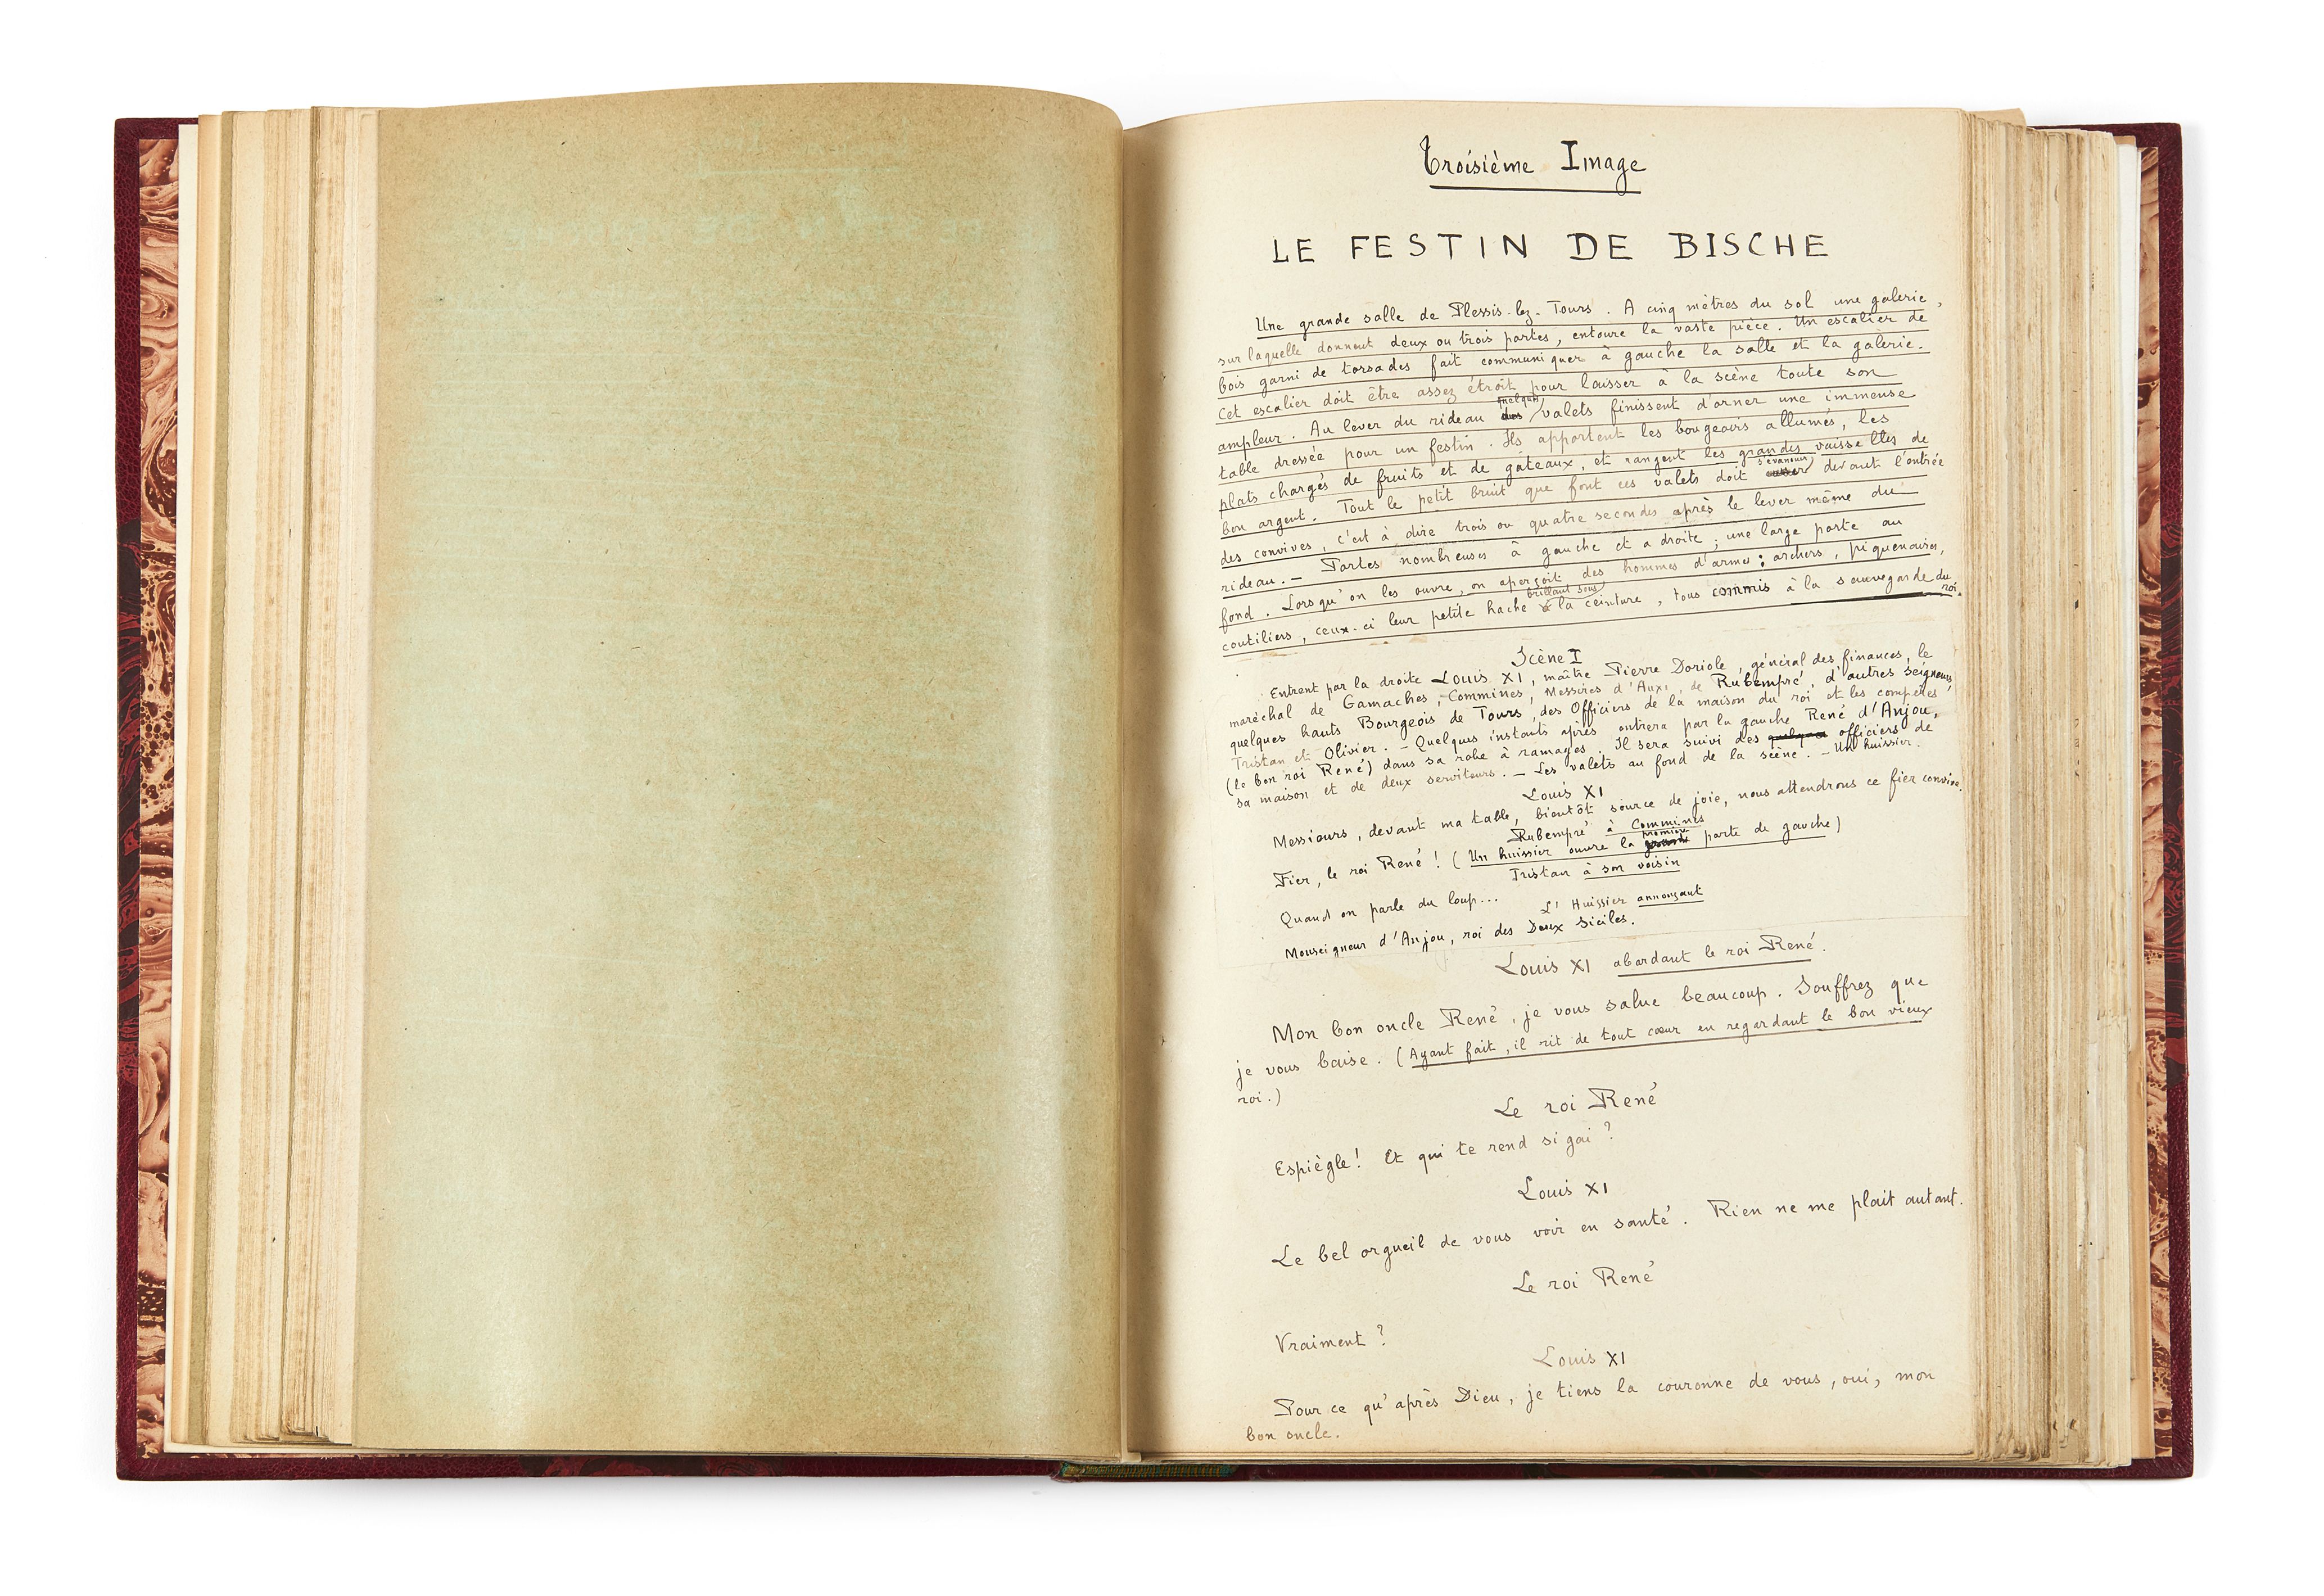 Troisième Image
LE FESTIN DE BISCHE
Une grande salle de Plessis-lez-Tours. A cinq mètres du sol une galerie,
sur laquelle donnent deux ou trois portes, entoure la vaste pièce. Un escalier de
bois garni de torsades fait communiquer à gauche la salle et la galerie.
Cet escalier doit être assez étroit pour laisser à la scène toute son
ampleur. Au lever du rideau quelques valets finissent d'orner une immense
table dressée pour un festin. Ils apportent les bougeoirs allumés, les
plats chargés de fruits et de gâteaux, et rangent les grandes vaisselles de
bon argent. Tout le petit bruit que font ces valets doit s'évanouir devant l'entrée
des convives, c'est à dire trois ou quatre secondes après le lever même du
rideau. — Portes nombreuses à gauche et a droite ; une large porte au
fond. Lorsqu'on les ouvre, on aperçoit des hommes d'armes : archers, piquenaires,
coutiliers, ceux-ci leur petite hache brillant sous la ceinture, tous commis à la sauvegarde du
roi.
Scène I
Entrent par la droite Louis XI, maître Pierre Doriole, général des finances, le
maréchal de Gamaches, Commines, Messires d'Auxi, de Rubempré, d'autres seigneurs,
quelques hauts Bourgeois de Tours, des Officiers de la maison du roi et les compères
Tristan et Olivier. — Quelques instants après entrera par la gauche René d'Anjou,
(le bon roi René) dans sa robe à ramages. Il sera suivi des officiers de
sa maison et de deux serviteurs. — Les valets au fond de la scène. — Un huissier.
Louis XI
Messieurs, devant ma table, bientôt source de joie, nous attendrons ce fier convive.
Rubempré à Commines
Fier, le roi René ! (Un huissier ouvre la porte de gauche)
Tristan à son voisin
Quand on parle du loup...
L'Huissier annonçant
Monseigneur d'Anjou, roi des Deux Siciles.
Louis XI abordant le roi René.
Mon bon oncle René, je vous salue beaucoup. Souffrez que
je vous baise. (Ayant fait, il rit de tout cœur en regardant le bon vieux
roi.)
Le roi René
Espiègle! Et qui te rend si gai ?
Louis XI
Le bel orgueil de vous voir en santé. Rien ne me plait autant.
Le roi René
Vraiment ?
Louis XI
Pour ce qu'après Dieu, je tiens la couronne de vous, oui, mon
bon oncle.